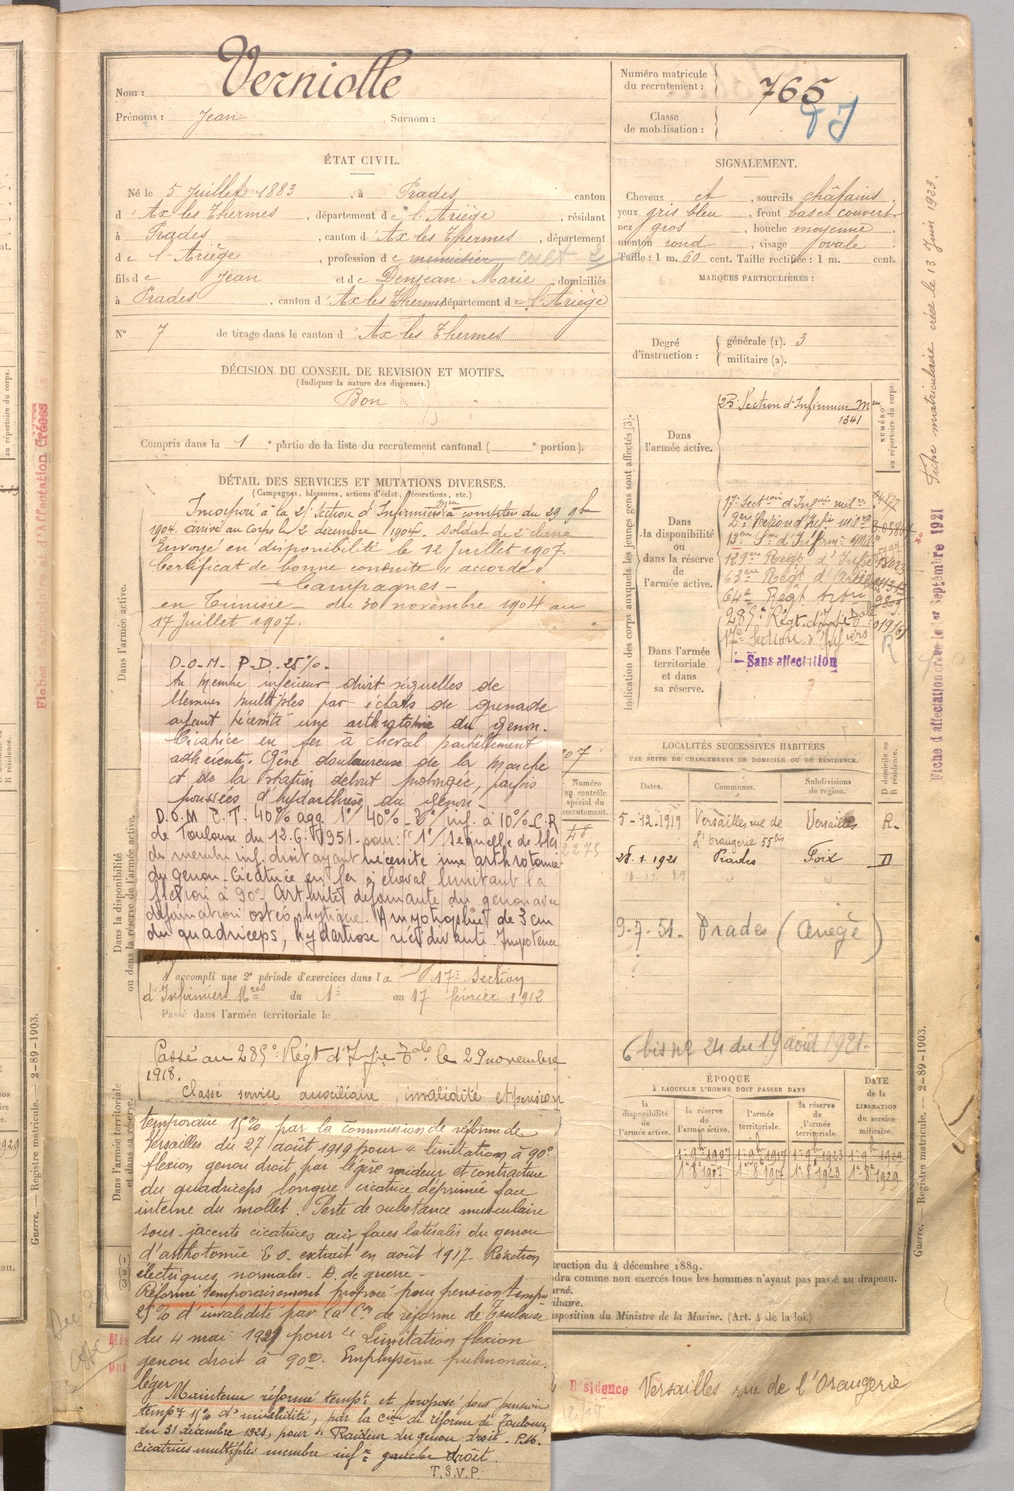 Nom : Verniolle
Prénoms : Jean Surnom :
Numéro matricule du recrutement : 765
Classe de mobilisation :
ÉTAT CIVIL.
Né le 5 Juillet 1883, à Prades canton
d'Ax les Thermes, département de l'Ariège, résidant
à Prades, canton d'Ax les Thermes, département
de l'Ariège, profession de menuisier, cult
fils de Jean et de Denjean Marie, domiciliés
à Prades, canton d'Ax les Thermes département de l'Ariège
N° 7 de tirage dans le canton d'Ax les Thermes
DÉCISION DU CONSEIL DE REVISION ET MOTIFS.
(Indiquer la nature des dispenses.)
Bon
Compris dans la 1 e partie de la liste du recrutement cantonal ( e portion).
DÉTAIL DES SERVICES ET MUTATIONS DIVERSES.
(Campagnes, blessures, actions d'éclat, décorations, etc.)
Incorporé à la 25e Section d'Infirmiers à compter du 29 9bre
1904. arrivé au Corps le 2 décembre 1904. Soldat de 2e classe
Envoyé en disponibilité le 12 Juillet 1907.
Certificat de bonne conduite "accordé"
— Campagnes —
en Tunisie — du 30 novembre 1904 au
17 Juillet 1907.
D.O.M. P.D. 25%.
Au membre inférieur droit séquelles de
blessures multiples par éclats de grenade
ayant nécessité une arthrotomie du genou.
Cicatrice en fer à cheval partiellement
adhérente. Gêne douloureuse de la marche
et de la station debout prolongée, parfois
poussées d'hydarthrose du genou.
D.O.M C.T. 40% agg. 1°/ 40% - 2°/ inf. à 10% C.R
de Toulouse du 12.6.1951. pour: "1°/ Séquelle de bles
du membre inf. droit ayant nécessité une arthrotomie
du genou. Cicatrice en fer à cheval limitant la
flexion à 90°. Arthrite déformante du genou avec
déformation ostéophytique. Amyotrophie de 3 cm
du quadriceps, hydartrose récidivante. Impotence
A accompli une 2e période d'exercices dans la 17e Section
d'Infirmiers Mres du 1er au 17 février 1912
Passé dans l'armée territoriale le
Passé au 285e Régt d'Infie le 29 novembre
1918.
Classé service auxiliaire, invalidité et pension
temporaire 15% par la commission de réforme de
Versailles du 27 août 1919 pour "limitation à 90°
flexion genou droit par légère raideur et contracture
du quadriceps longue cicatrice déprimée face
interne du mollet. Perte de substance musculaire
sous-jacente cicatrices aux faces latérales du genou
d'arthotomie E.O. extrait en août 1917. Réaction
électriques normales. B. de guerre.
Réformé temporairement proposé pour pension tempre
25% d'invalidité par la Con de réforme de Toulouse
du 4 mai 1921 pour "Limitation flexion
genou droit à 90°. Emphysème pulmonaire
léger
Maintenu réformé tempt et propose pour pension
tempre 15% d'invalidité, par la Cion de réforme de Toulouse
du 31 décembre 1921, pour "Raideur du genou droit. P.M.
cicatrices multiples membre infr gauche droit.
T.S.V.P.
Dans l'armée active.
Dans la disponibilité ou dans la réserve de l'armée active.
Dans l'armée territoriale et dans sa réserve.
SIGNALEMENT.
Cheveux et, sourcils châtains
yeux gris bleu, front bas et couvert
nez gros, bouche moyenne
menton rond, visage ovale
Taille : 1 m. 60 cent. Taille rectifiée : 1 m. cent.
MARQUES PARTICULIÈRES :
Degré d'instruction : générale (1). 3
militaire (2).
Indication des corps auxquels les jeunes gens sont affectés (3).
NUMÉRO au répertoire du corps.
Dans l'armée active.
25e Section d'Infirmiers Mres
1341
Dans la disponibilité ou dans la réserve de l'armée active.
17e Section d'Infirmiers milres
129me Régt d'Infie
63me Régt d'Artie
64e Régt
285e Régt d'Infie
17e Section d'Infiers
R
Dans l'armée territoriale et dans sa réserve.
Sans affectation
LOCALITÉS SUCCESSIVES HABITÉES
PAR SUITE DE CHANGEMENTS DE DOMICILE OU DE RÉSIDENCE.
Dates. Communes. Subdivisions de région. D domicile ou R résidence.
5-12-1919 Versailles rue de Versailles R.
L'Orangerie 55bis
28.1.1921 Prades Foix D
9-7-51. Prades (Ariège)
Numéro au contrôle spécial du recrutement.
6 bis n° 24 du 19 août 1921.
ÉPOQUE
À LAQUELLE L'HOMME DOIT PASSER DANS
la disponibilité de l'armée active. la réserve de l'armée active. l'armée territoriale. la réserve de l'armée territoriale.
DATE de la LIBÉRATION du service militaire.
struction du 4 décembre 1889.
ndra comme non exercés tous les hommes n'ayant pas passé au drapeau.
sposition du Ministre de la Marine. (Art. 4 de la loi.)
Résidence Versailles rue de l'Orangerie
Fiche matriculaire créée le 13 Juin 1923.
Fiche d'affectation créée le 1er Septembre 1921
Guerre. — Registre matricule. — 2-89-1903.
Guerre. — Registre matricule. — 2-89-1903.